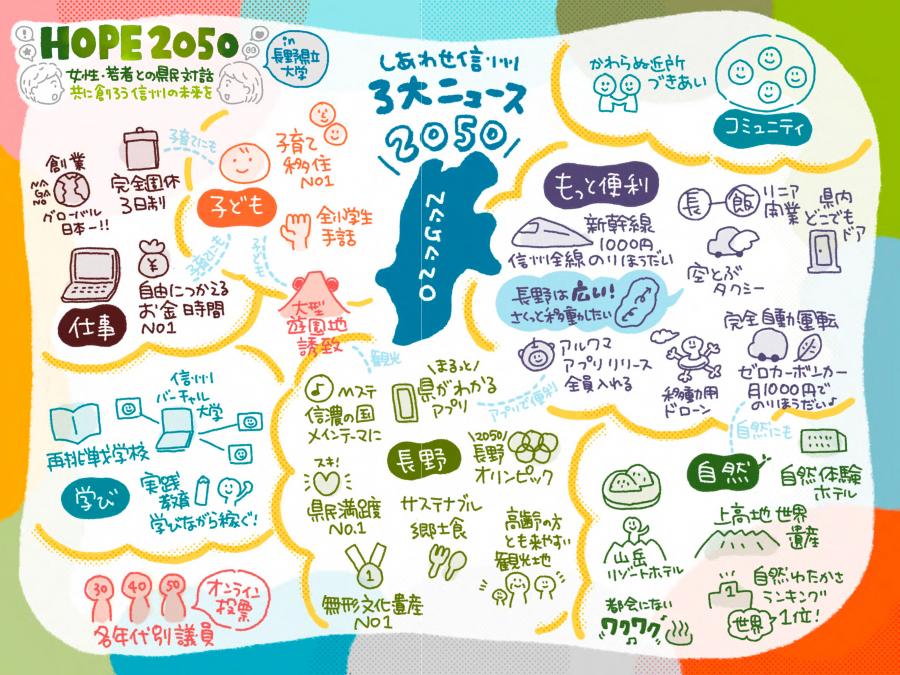 HOPE2050
女性・若者との県民対話
共に創ろう信州の未来を
in
長野県立
大学
しあわせ信州
3大ニュース
2050
NAGANO
かわらぬ近所
づきあい
コミュニティ
創業
NA
GA
NO
グローバル
日本一!!
完全週休
3日制
子育てにも
子育て
移住
NO1
子ども
全小学生
手話
仕事
自由につかえる
お金時間
NO1
子育てにも
子どもも
大型
遊園地
誘致
もっと便利
新幹線
1000円
信州全線のりほうだい
長 飯
リニア
開業
県内
どこでも
ドア
空とぶ
タクシー
長野は広い!
さくっと移動したい
アルクマ
アプリリリース
全員入れる
移動用
ドローン
完全自動運転
ゼロカーボンカー
月1000円で
のりほうだい♪
観光
アプリで便利
自然にも
信州
バーチャル
大学
再挑戦学校
学び
実践
教育
学びながら稼ぐ!
Mステ
信濃の国
メインテーマに
\まるっと/
県がわかる
アプリ
長野
\2050/
長野
オリンピック
スキ!
県民満足度
NO.1
サステナブル
郷土食
高齢の方
とも来やすい
観光地
1
無形文化遺産
NO1
自然
自然体験
ホテル
山岳
リゾートホテル
上高地 世界
遺産
都会にない
ワクワク
1
自然ゆたかさ
ランキング
世界1位!
30 40 50
オンライン
投票
各年代別議員